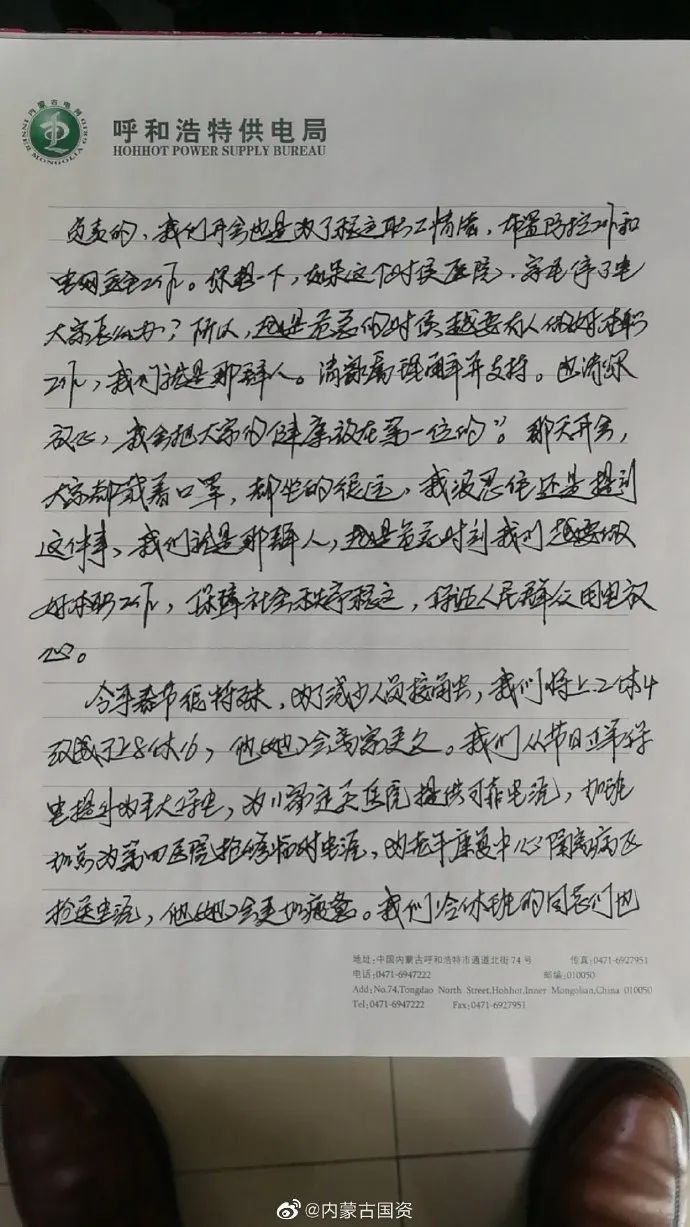 内蒙古电网
INNER MONGOLIA GRID
呼和浩特供电局
HOHHOT POWER SUPPLY BUREAU
负责的，我们开会也是为了稳定职工情绪，布置防控工作和
电网安全工作。你想一下，如果这个时候医院、家里停了电
大家怎么办？所以，越是危急的时候越要有人做好本职
工作，我们就是那群人。请家属理解并支持。也请你
放心，我会把大家的健康放在第一位的”。那天开会，
大家都戴着口罩，都坐的很远，我没忍住还是提到
这件事，我们就是那群人，越是危急时刻我们越要做
好本职工作，保障社会秩序稳定，保证人民群众用电放
心。
今年春节很特殊，为了减少人员接触，我们将上2休4
改成了上8休16，他（她）会离家更久。我们从节日正常保
电提升为重大保电，为11家定点医院提供可靠电源，加班
加点为第四医院抢修临时电源，为老年康复中心隔离病区
抢送电源，他（她）会更加疲惫。我们给休班的同志们也
地址:中国内蒙古呼和浩特市通道北街74号 传真:0471-6927951
电话:0471-6947222 邮编:010050
Add:No.74,Tongdao North Street,Hohhot,Inner Mongolian,China 010050
Tel:0471-6947222 Fax:0471-6927951
@内蒙古国资